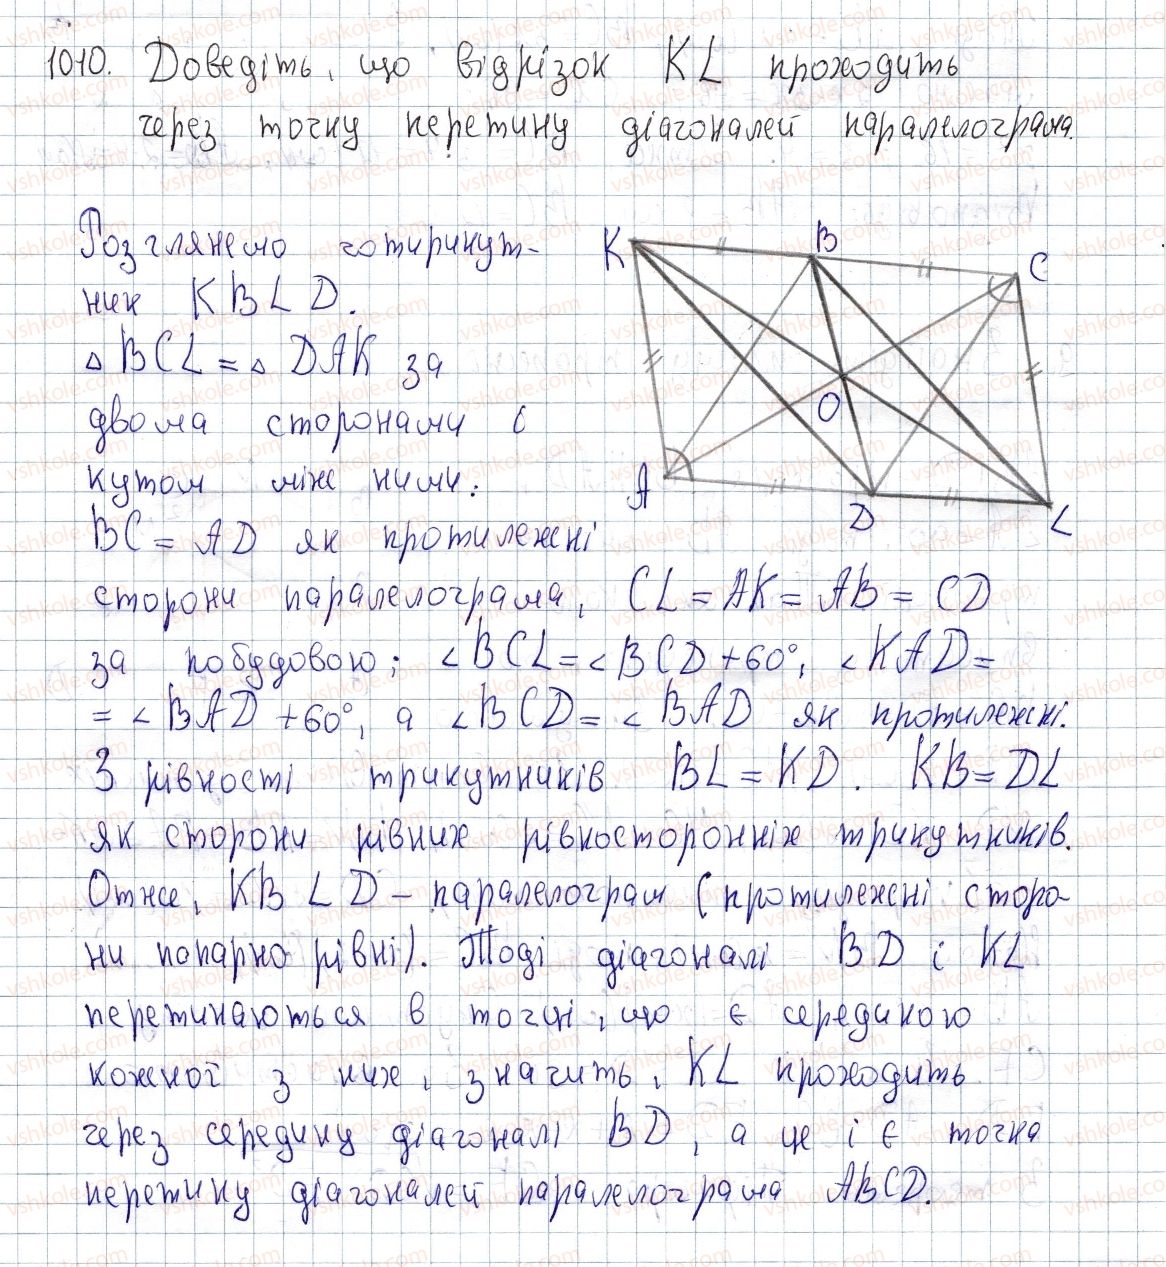 1010. Доведіть, що відрізок KL проходить
через точку перетину діагоналей паралелограма.
Розглянемо чотирикут-
ник KBLD.
△BCL = △DAK за
двома сторонами і
кутом між ними:
BC = AD як протилежні
сторони паралелограма, CL = AK = AB = CD
за побудовою; ∠BCL = ∠BCD + 60°, ∠KAD =
= ∠BAD + 60°, а ∠BCD = ∠BAD як протилежні.
З рівності трикутників BL = KD. KB = DL
як сторони рівних рівносторонніх трикутників.
Отже, KBLD – паралелограм (протилежні сторо-
ни попарно рівні). Тоді діагоналі BD і KL
перетинаються в точці, що є серединою
кожної з них, значить, KL проходить
через середину діагоналі BD, а це і є точка
перетину діагоналей паралелограма ABCD.
K
B
C
O
A
D
L
vshkole.com